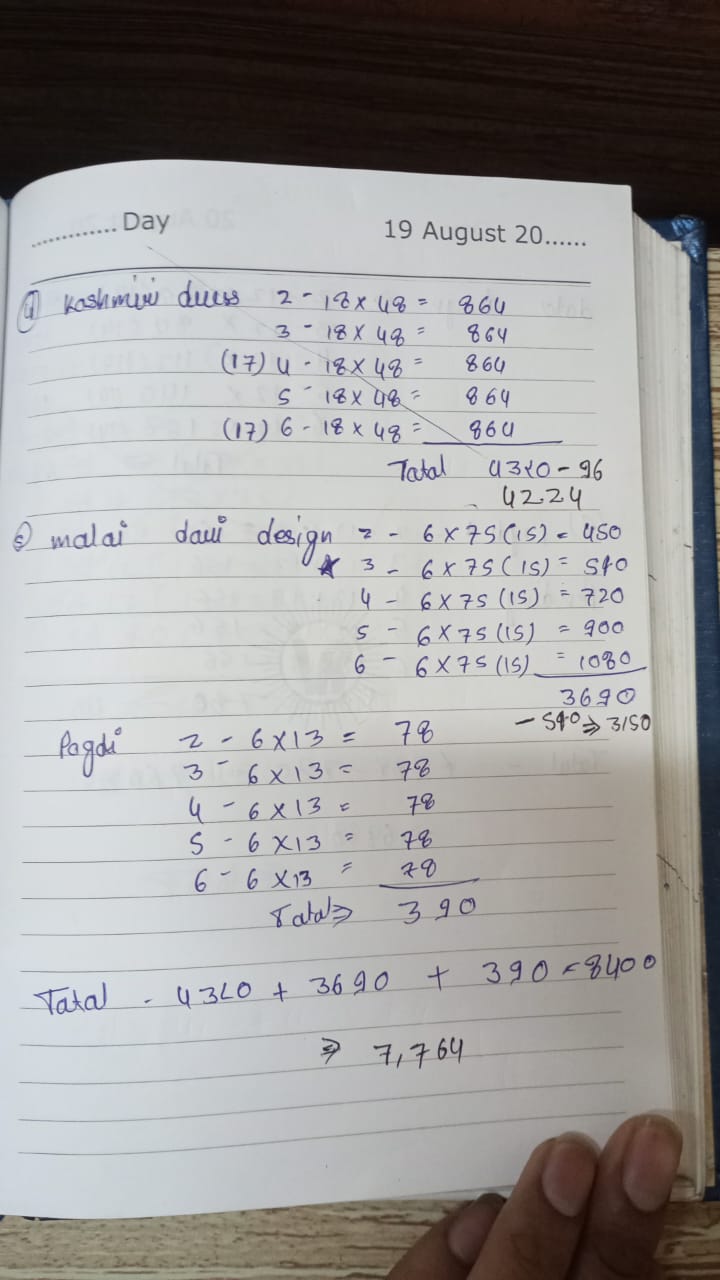 ............ Day 19 August 20......
4) Kashmiri dress 2 - 18 x 48 = 864
3 - 18 x 48 = 864
(17) 4 - 18 x 48 = 864
5 - 18 x 48 = 864
(17) 6 - 18 x 48 = 864
Total 4320 - 96
4224
5) malai design 2 - 6 x 75 (15) = 450
3 - 6 x 75 (15) = 540
4 - 6 x 75 (15) = 720
5 - 6 x 75 (15) = 900
6 - 6 x 75 (15) = 1080
3690
- 540 ⇒ 3150
Pagdi 2 - 6 x 13 = 78
3 - 6 x 13 = 78
4 - 6 x 13 = 78
5 - 6 x 13 = 78
6 - 6 x 13 = 78
Total ⇒ 390
Total - 4320 + 3690 + 390 = 8400
⇒ 7,764